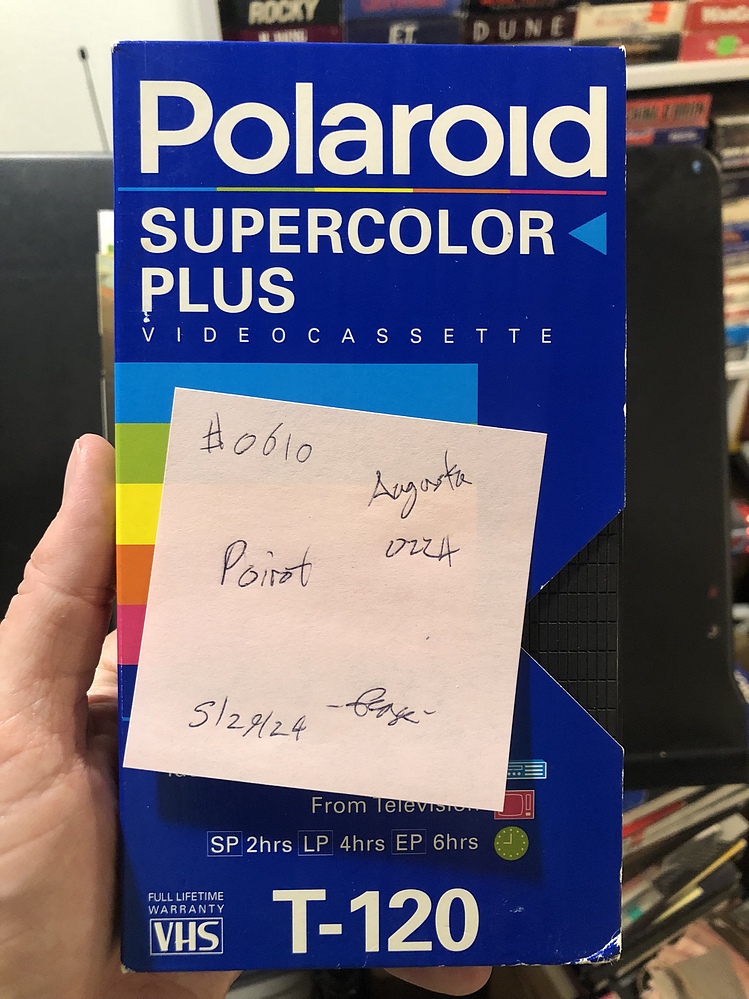 ROCKY
E.T.
DUNE
Polaroid
SUPERCOLOR
PLUS
VIDEOCASSETTE
#0610
Augusta
0224
Poirot
5/29/24
From Television
SP 2hrs LP 4hrs EP 6hrs
FULL LIFETIME
WARRANTY
VHS
T-120